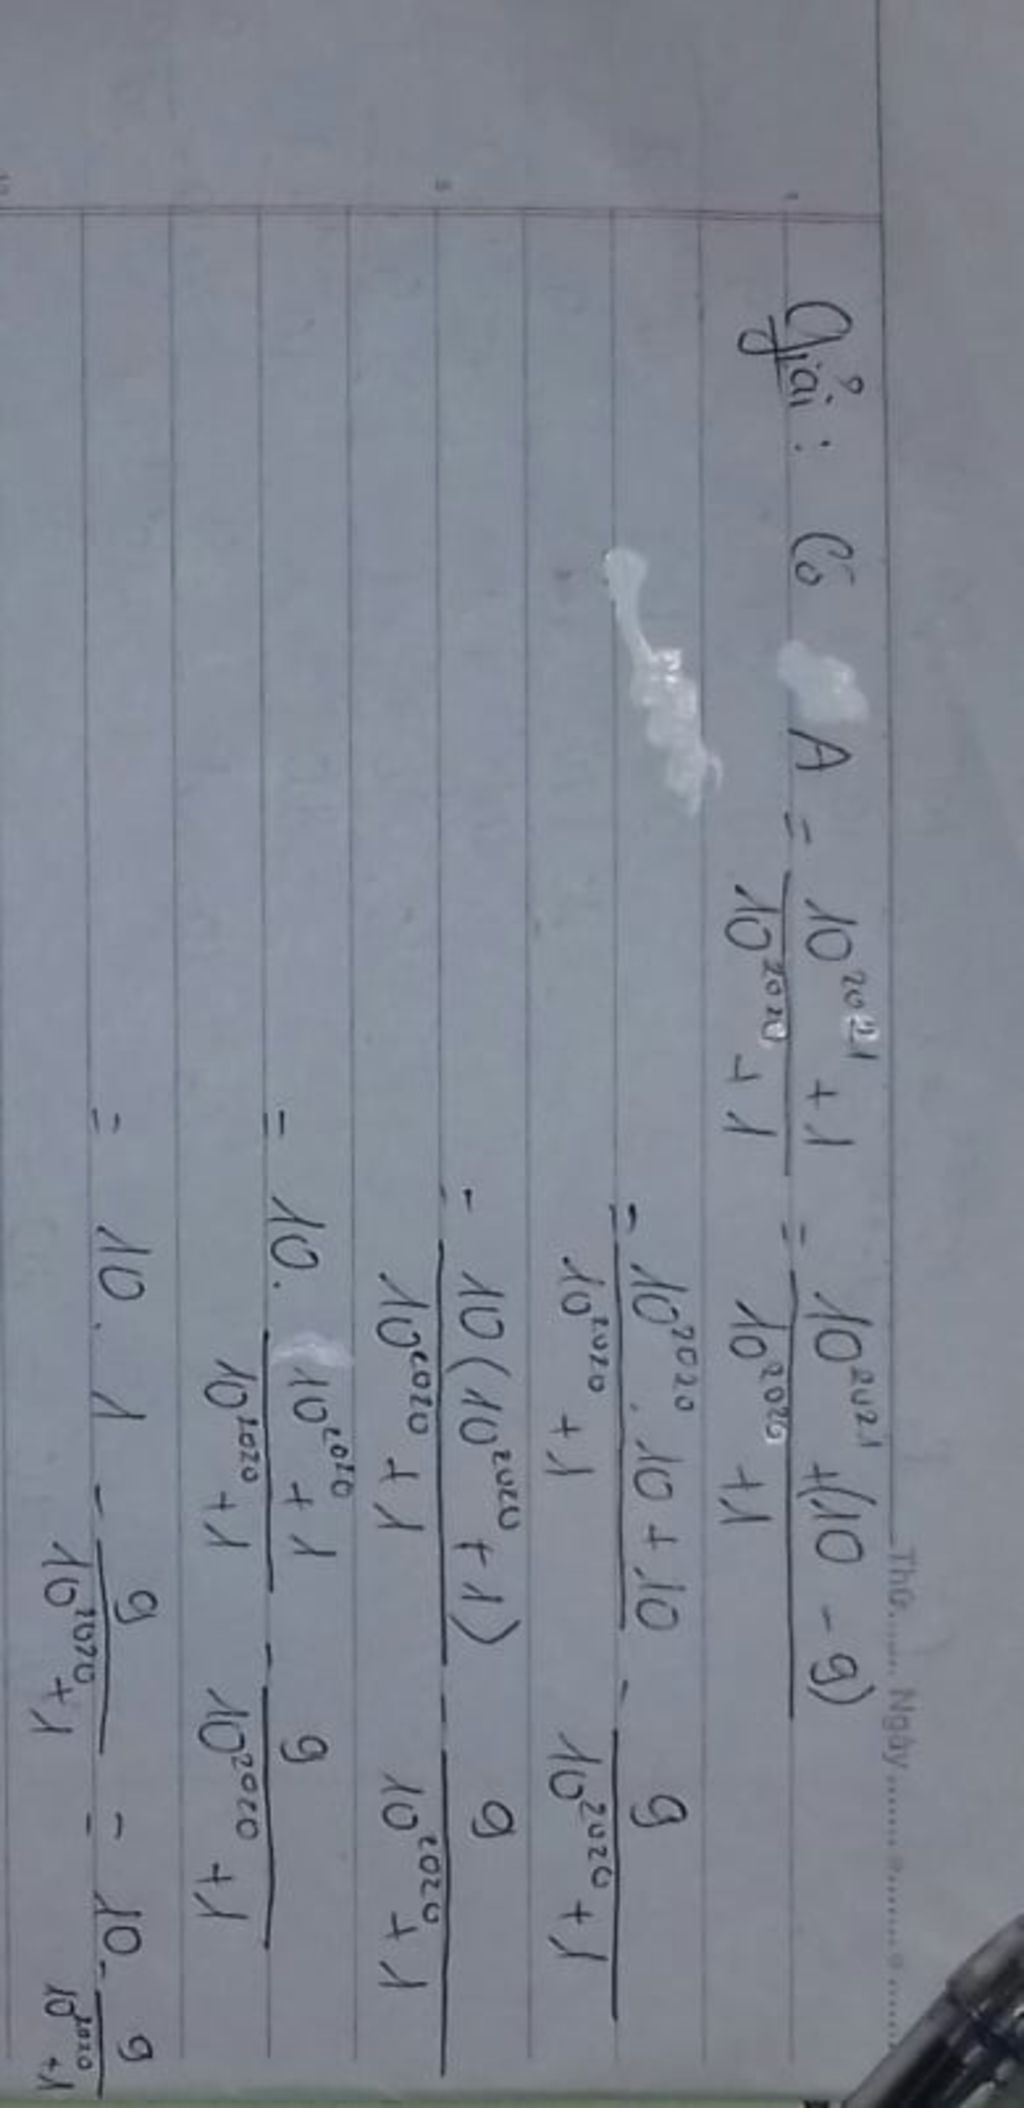 Thứ....... Ngày............
Giải : Có A = \frac{10^{2021} + 1}{10^{2020} + 1} = \frac{10^{2021} + (10 - 9)}{10^{2020} + 1}
= \frac{10^{2020} . 10 + 10}{10^{2020} + 1} - \frac{9}{10^{2020} + 1}
= \frac{10(10^{2020} + 1)}{10^{2020} + 1} - \frac{9}{10^{2020} + 1}
= 10 . \frac{10^{2020} + 1}{10^{2020} + 1} - \frac{9}{10^{2020} + 1}
= 10 . 1 - \frac{9}{10^{2020} + 1} = 10 - \frac{9}{10^{2020} + 1}